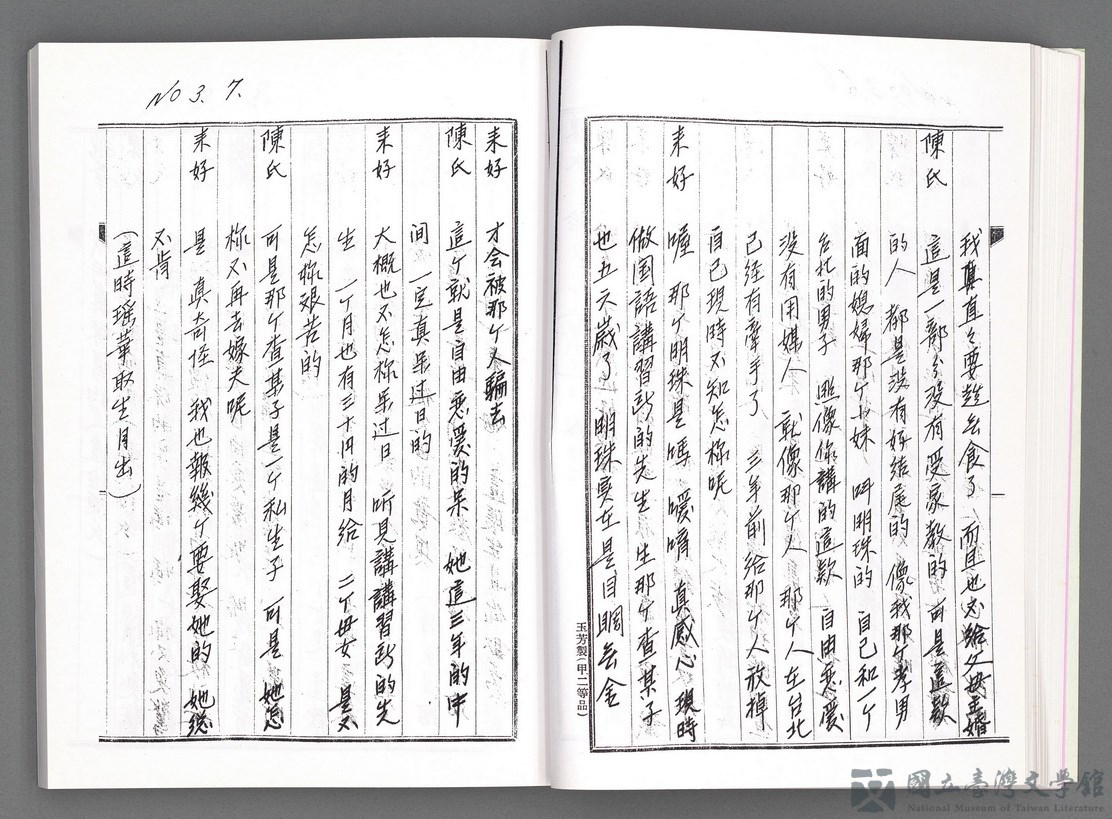 我真直々要趕去食了 而且也必給父母主婚
陳氏 這是一部分沒有受家教的 可是這款
的人 都是沒有好結尾的 像我那个孝男
面的媳婦那个小妹 叫明珠的 自己和一个
台北的男子 照像你講的這款 自由恋愛
沒有用媒人 就像那个人 那个人在台北
已経有牽手了 三年前給那个人放掉
自己現時不知怎樣呢
來好 喔 那个明珠是嗎 噯唷 真感心 現時
做国語講習所的先生 生那个查某子
也五六歳了 明珠実在是目睭去舍
玉芳製(甲二等品)
No 3. 7.
來好 才会被那个人騙去
陳氏 這个就是自由恋愛的呆 她這三年的中
間 一定真呆过日的
來好 大概也不怎樣呆过日 听見講講習所的先
生 一个月也有三十円的月給 二个母女 是不
怎樣艰苦的
陳氏 可是那个查某子是一个私生子 可是 她怎
樣不再去嫁夫呢
來好 是 真奇怪 我也報幾个要娶她的 她総
不肯
(這時瑶華取生月出)
國立臺灣文學館
National Museum of Taiwan Literature